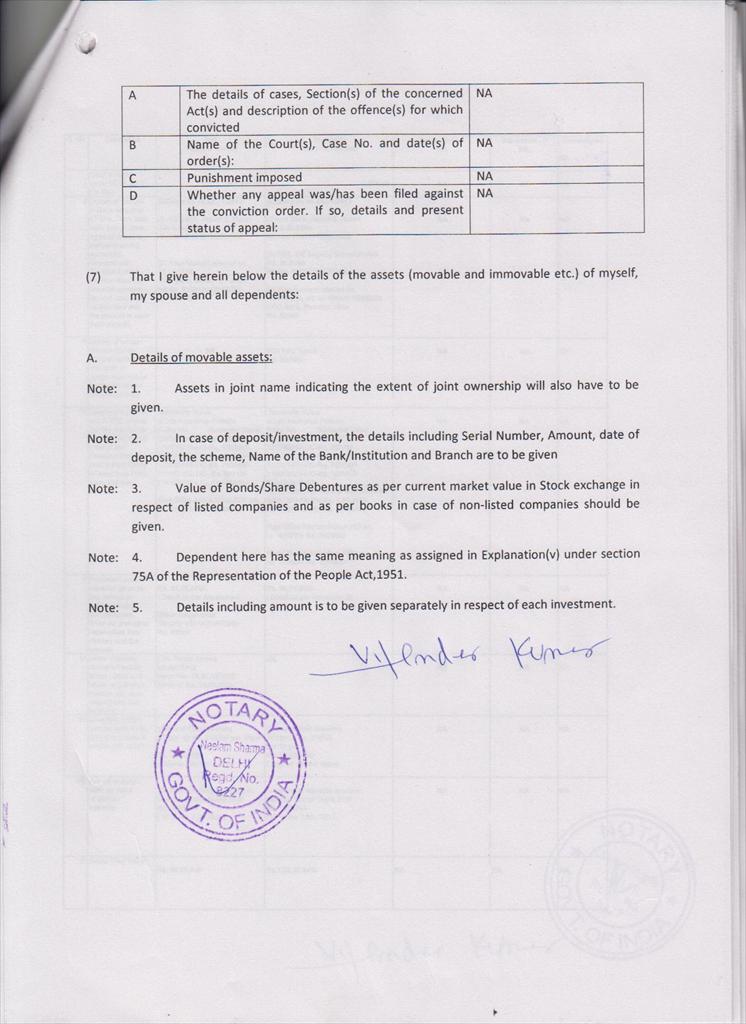 A The details of cases, Section(s) of the concerned NA
Act(s) and description of the offence(s) for which
convicted
B Name of the Court(s), Case No. and date(s) of NA
order(s):
C Punishment imposed NA
D Whether any appeal was/has been filed against NA
the conviction order. If so, details and present
status of appeal:
(7) That I give herein below the details of the assets (movable and immovable etc.) of myself,
my spouse and all dependents:
A. Details of movable assets:
Note: 1. Assets in joint name indicating the extent of joint ownership will also have to be
given.
Note: 2. In case of deposit/investment, the details including Serial Number, Amount, date of
deposit, the scheme, Name of the Bank/Institution and Branch are to be given
Note: 3. Value of Bonds/Share Debentures as per current market value in Stock exchange in
respect of listed companies and as per books in case of non-listed companies should be
given.
Note: 4. Dependent here has the same meaning as assigned in Explanation(v) under section
75A of the Representation of the People Act,1951.
Note: 5. Details including amount is to be given separately in respect of each investment.
Kumar
NOTARY
Neelam Sharma
DELHI
Regd. No.
8227
GOVT. OF INDIA
NOTARY
GOVT. OF INDIA